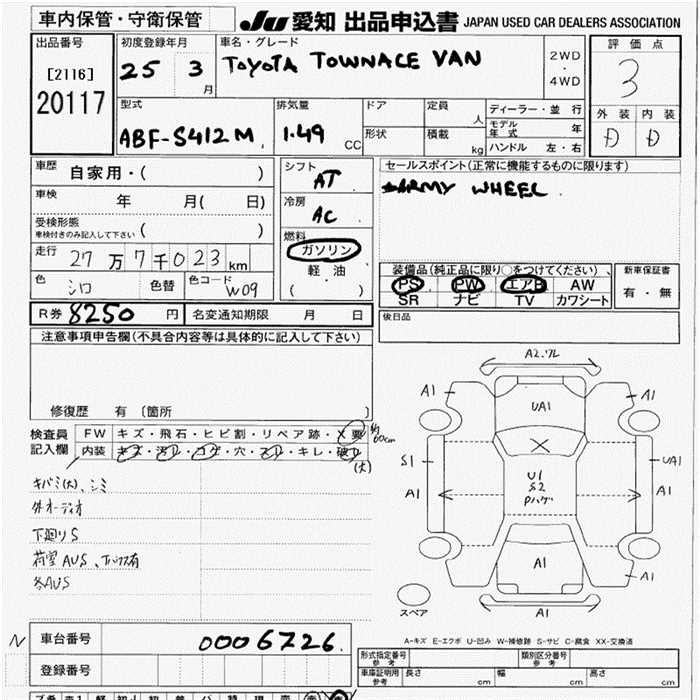 車内保管・守衛保管
JU 愛知 出品申込書 JAPAN USED CAR DEALERS ASSOCIATION
出品番号
[2116]
20117
初度登録年月
25 3 月
車名・グレード
TOYOTA TOWNACE VAN
2WD
・
4WD
評価点
3
外装 内装
D D
型式
ABF-S412M
排気量
1.49 CC
ドア
形状
定員 人
積載 kg
ディーラー・並 行
モデル年式 年
ハンドル 左・右
車歴
自家用・( )
車検 年 月( 日)
受検形態
車検付きのみ記入して下さい ( )
走行 27万7千023km
色 シロ 色替 色コード W09
シフト
AT
冷房
AC
燃料
ガソリン
・
軽油
( )
セールスポイント(正常に機能するものに限ります)
ARMY WHEEL
装備品(純正品に限り○をつけてください)
PS PW エアB AW
SR ナビ TV カワシート
新車保証書
有・無
R券 8250 円 名変通知期限 月 日
後日品
注意事項申告欄(不具合内容等は具体的に記入して下さい)
修復歴 有 〔箇所 〕
検査員
記入欄
FW キズ・飛石・ヒビ割・リペア跡・X要 約60cm
内装 キズ・汚レ・コゲ・穴・スレ・キレ・破レ
(大)
キバミ(大)、シミ
外オーディオ
下廻りS
荷室AUS、
各AUS
A2.ワレ
A1
A1
UA1
S1
A1
U1
S2
Pハゲ
UA1
A1
A1
A1
A1
スペア
A-キズ E-エクボ U-凹み W-補修跡 S-サビ C-腐食 XX-交換済
N 車台番号 0006726
登録番号
形式指定番号
参考
類別区分番号
参考
車庫証明用
参考
長さ cm 幅 cm 高さ cm